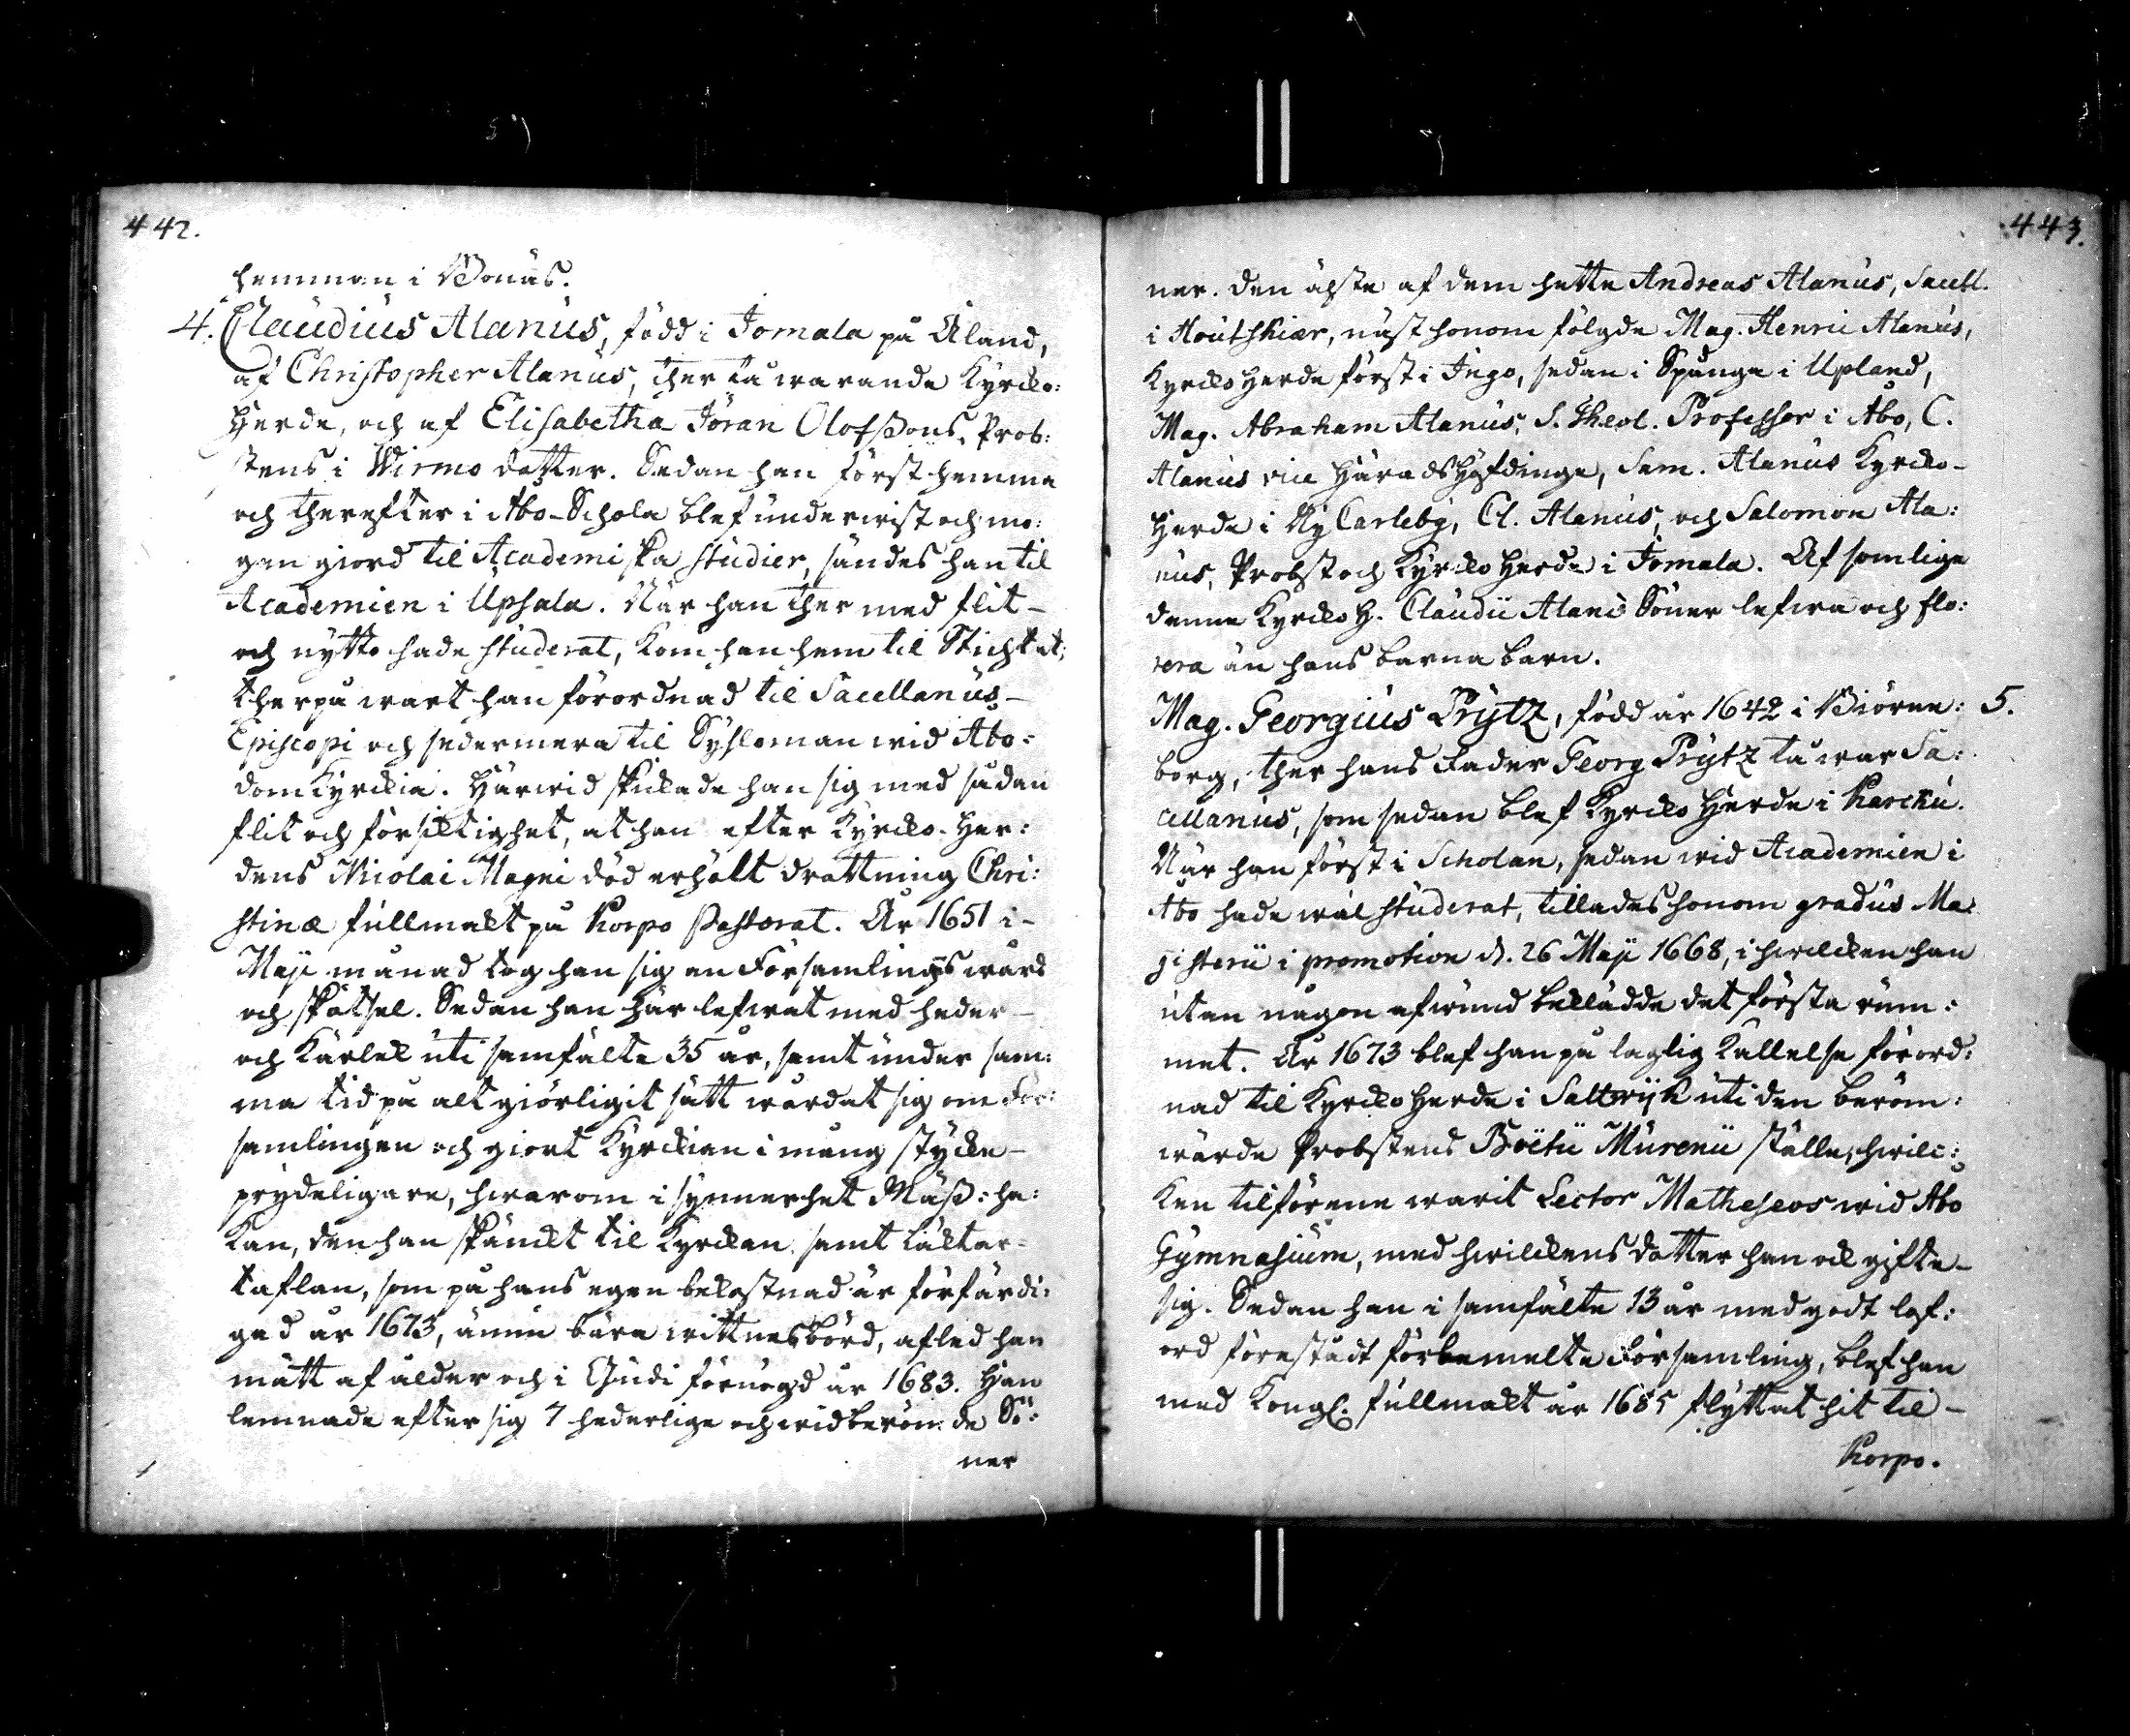 442.
hemman i Bonäs.
4. Claudius Alanus, född i Jomala på Åland,
af Christopher Alanus, ther tå warande Kyrcko:
Herde, och af Elisabetha Jöran Olofssons, Prob:
stens i Wirmo dotter. Sedan han först hemma
och therefter i Åbo-Schola blef underwist och mo:
gen giord til Academiska studier, sändes han til
Academien i Upsala. När han ther med flit-
och nytto hade studerat, kom han hem til Stichtet;
therpå wart han förordnad til Sacellanus-
Episcopi och sedermera til Sysloman wid Åbo-
domkyrckia. Härwid skickade han sig med sådan
flit och försiktighet, at han efter Kyrcko-Her:
dens Nicolai Magni död erhölt drottning Chri:
stinæ fullmakt på Korpo Pastorat. År 1651 i-
Maji månad tog han sig an Församlingswård
och skötsel. Sedan han här lefwat med heder-
och kärlek uti samfälte 35 år, samt under sam:
ma tid på alt giörligit sätt wårdat sig om För:
samlingen och giort Kyrckian i mång stycke-
prydeligare, hwarom i synnerhet Mäss-ha:
kan, den han skänckt til Kyrckan samt läktar-
taflan, som på hans egen bekostnad är förfärdi:
gad år 1673, ännu bära wittnesbörd, afled han
mätt af ålder och i Gudi förnögd år 1683. Han
lemnade efter sig 7 hederlige och widberömde Sö:
ner
443.
ner. den älste af dem hette Andreas Alanus, Sacell.
i Houtskiär, näst honom fölgde Mag. Henric Alanus,
Kyrcko Herde först i Ingo, sedan i Spånga i Upland,
Mag. Abraham Alanus, S. Theol. Professor i Åbo, C.
Alanus vice Häradshöfdinge, Sam. Alanus Kyrcko-
Herde i Ny Carleby, Cl. Alanus, och Salomon Ala:
nus, Probst och Kyrcko Herde i Jomala. Af somlige
denne Kyrcko H. Claudii Alani Söner lefwa och flo:
rera än hans barna barn.
Mag. Georgius Prytz, född år 1642 i Biörne: 5.
borg, ther hans Fader Georg Prytz tå war Sa:
cellanus, som sedan blef Kyrcko Herde i Karcku.
När han först i Scholan, sedan wid Academien i
Åbo hade wäl studerat, tillades honom gradus Ma:
gisterii i promotion d. 26 Maji 1668, i hwilcken han
utan någon afwund beklädde det första rum:
met. År 1673 blef han på laglig kallelse förord:
nad til Kyrcko Herde i Saltwijk uti den beröm:
wärde Probstens Boëtii Murenii ställe, hwilc:
ken tilförene warit Lector Matheseos wid Åbo
Gymnasium, med hwilckens dotter han ock gifte-
sig. Sedan han i samfälte 13 år med godt lof:
ord förestådt förbemelte Församling, blef han
med Kongl. fullmakt år 1685 flyttat hit til-
Korpo.